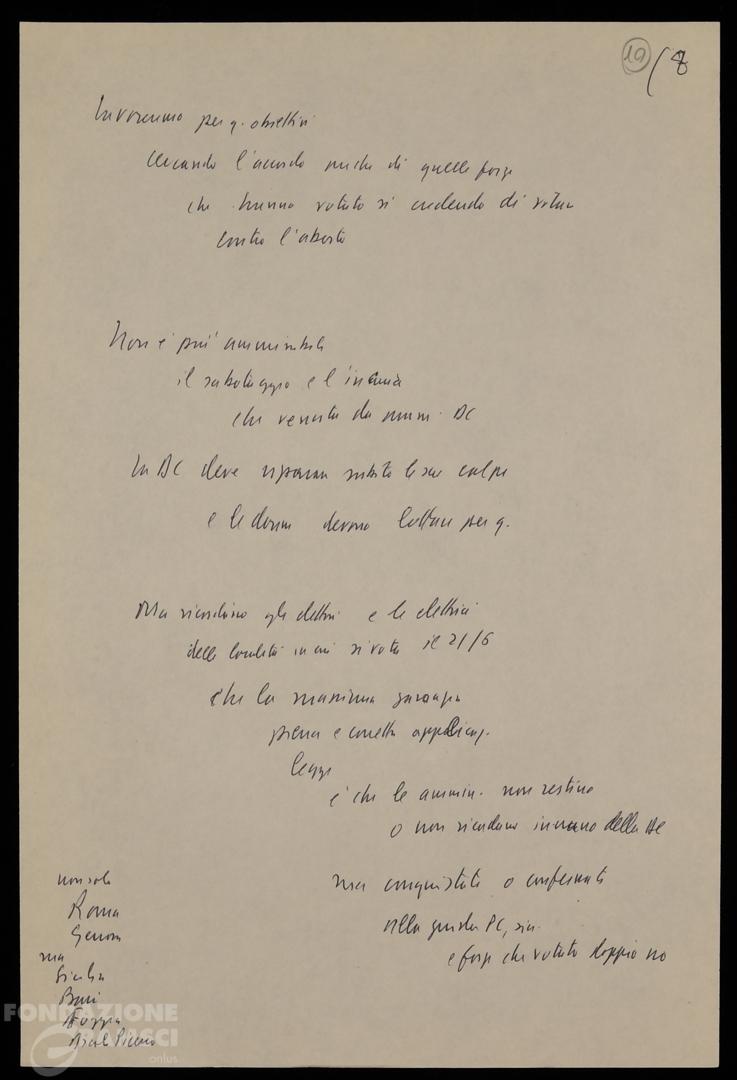 19 / 8
Lavoreremo per q. obiettivi
cercando l'accordo anche di quelle forze
che hanno votato sì credendo di votare
contro l'aborto
Non è più ammissibile
il sabotaggio e l'incuria
che venuta da ammin. DC
La DC deve riparare subito le sue colpe
e le donne devono lottare per q.
Ma ricordino gli elettori e le elettrici
delle località in cui si vota il 21/6
che la massima garanzia
piena e corretta applicaz.
legge
è che le ammin. non restino
o non ricadano in mano della DC
ma conquistate o confermate
alla guida PC, sin.
e forze che votato doppio no
non solo
Roma
Genova
ma
Sicilia
Bari
Foggia
Ascoli Piceno
FONDAZIONE
GRAMSCI
onlus